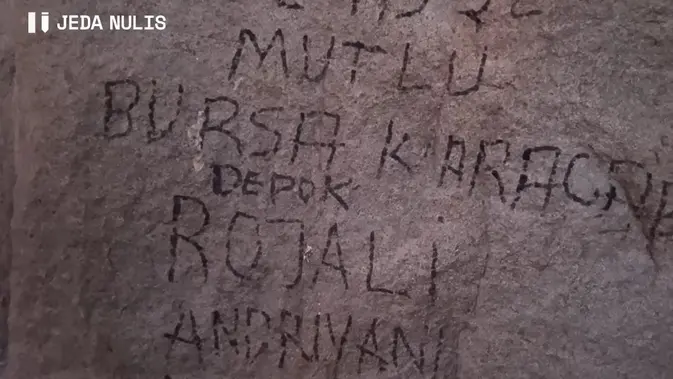 JEDA NULIS
MUTLU
BURSA KARACABE
DEPOK
ROJALI
ANDRIYANI